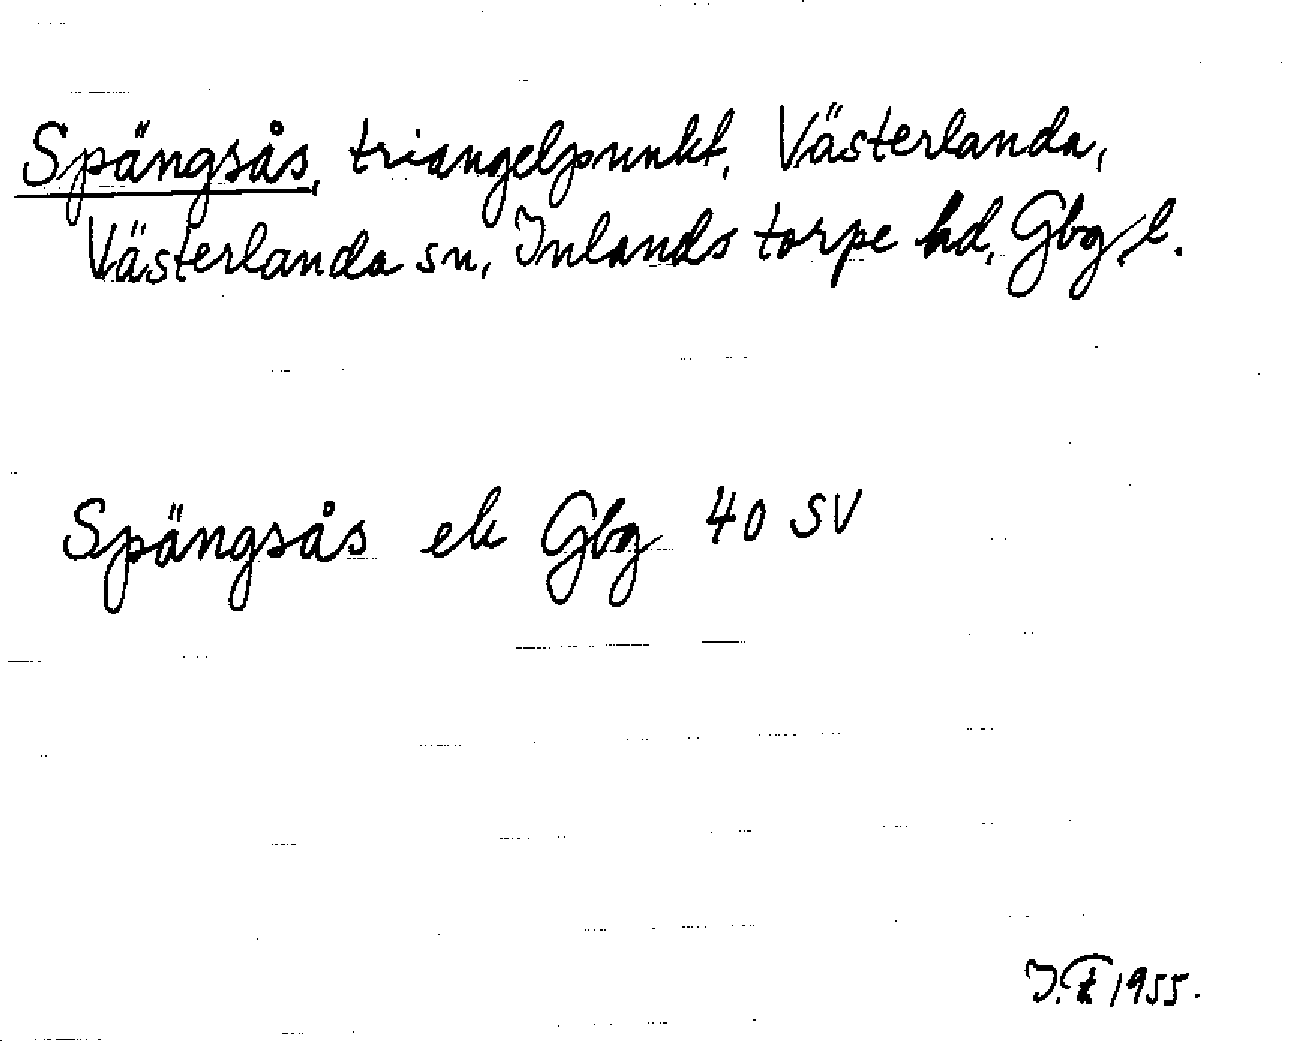 Spängsås, triangelpunkt, Västerlanda,
Västerlanda sn, Inlands torpe hd, Gbg l.
Spängsås ek Gbg 40 SV
1955.